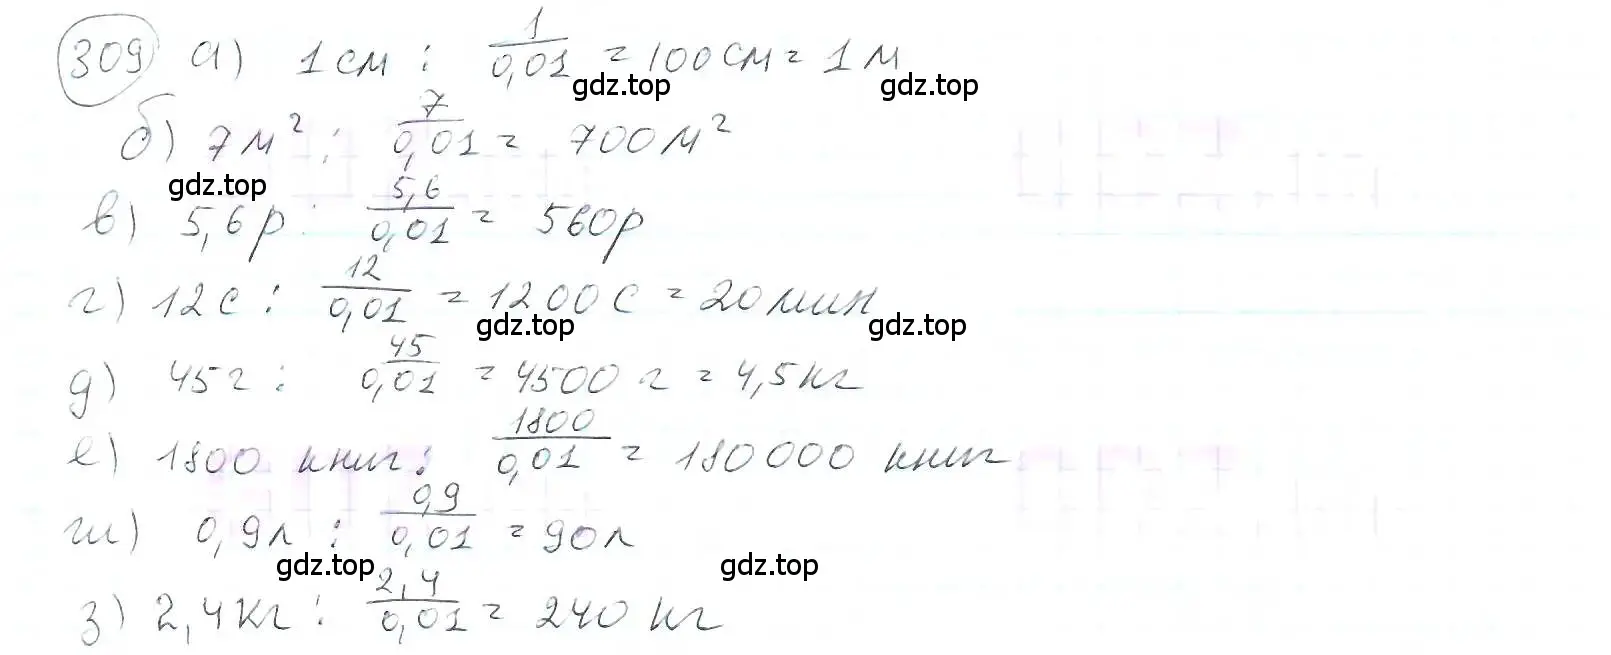 309 а) 1 см : 1/0,01 = 100 см = 1 м
gdz.top gdz.top
б) 7 м² : 7/0,01 = 700 м²
gdz.top
в) 5,6 р : 5,6/0,01 = 560 р
г) 12 с : 12/0,01 = 1200 с = 20 мин
gdz.top gdz.top
д) 45 г : 45/0,01 = 4500 г = 4,5 кг
е) 1800 книг : 1800/0,01 = 180000 книг
ж) 0,9 л : 0,9/0,01 = 90 л
gdz.top gdz.top
з) 2,4 кг : 2,4/0,01 = 240 кг